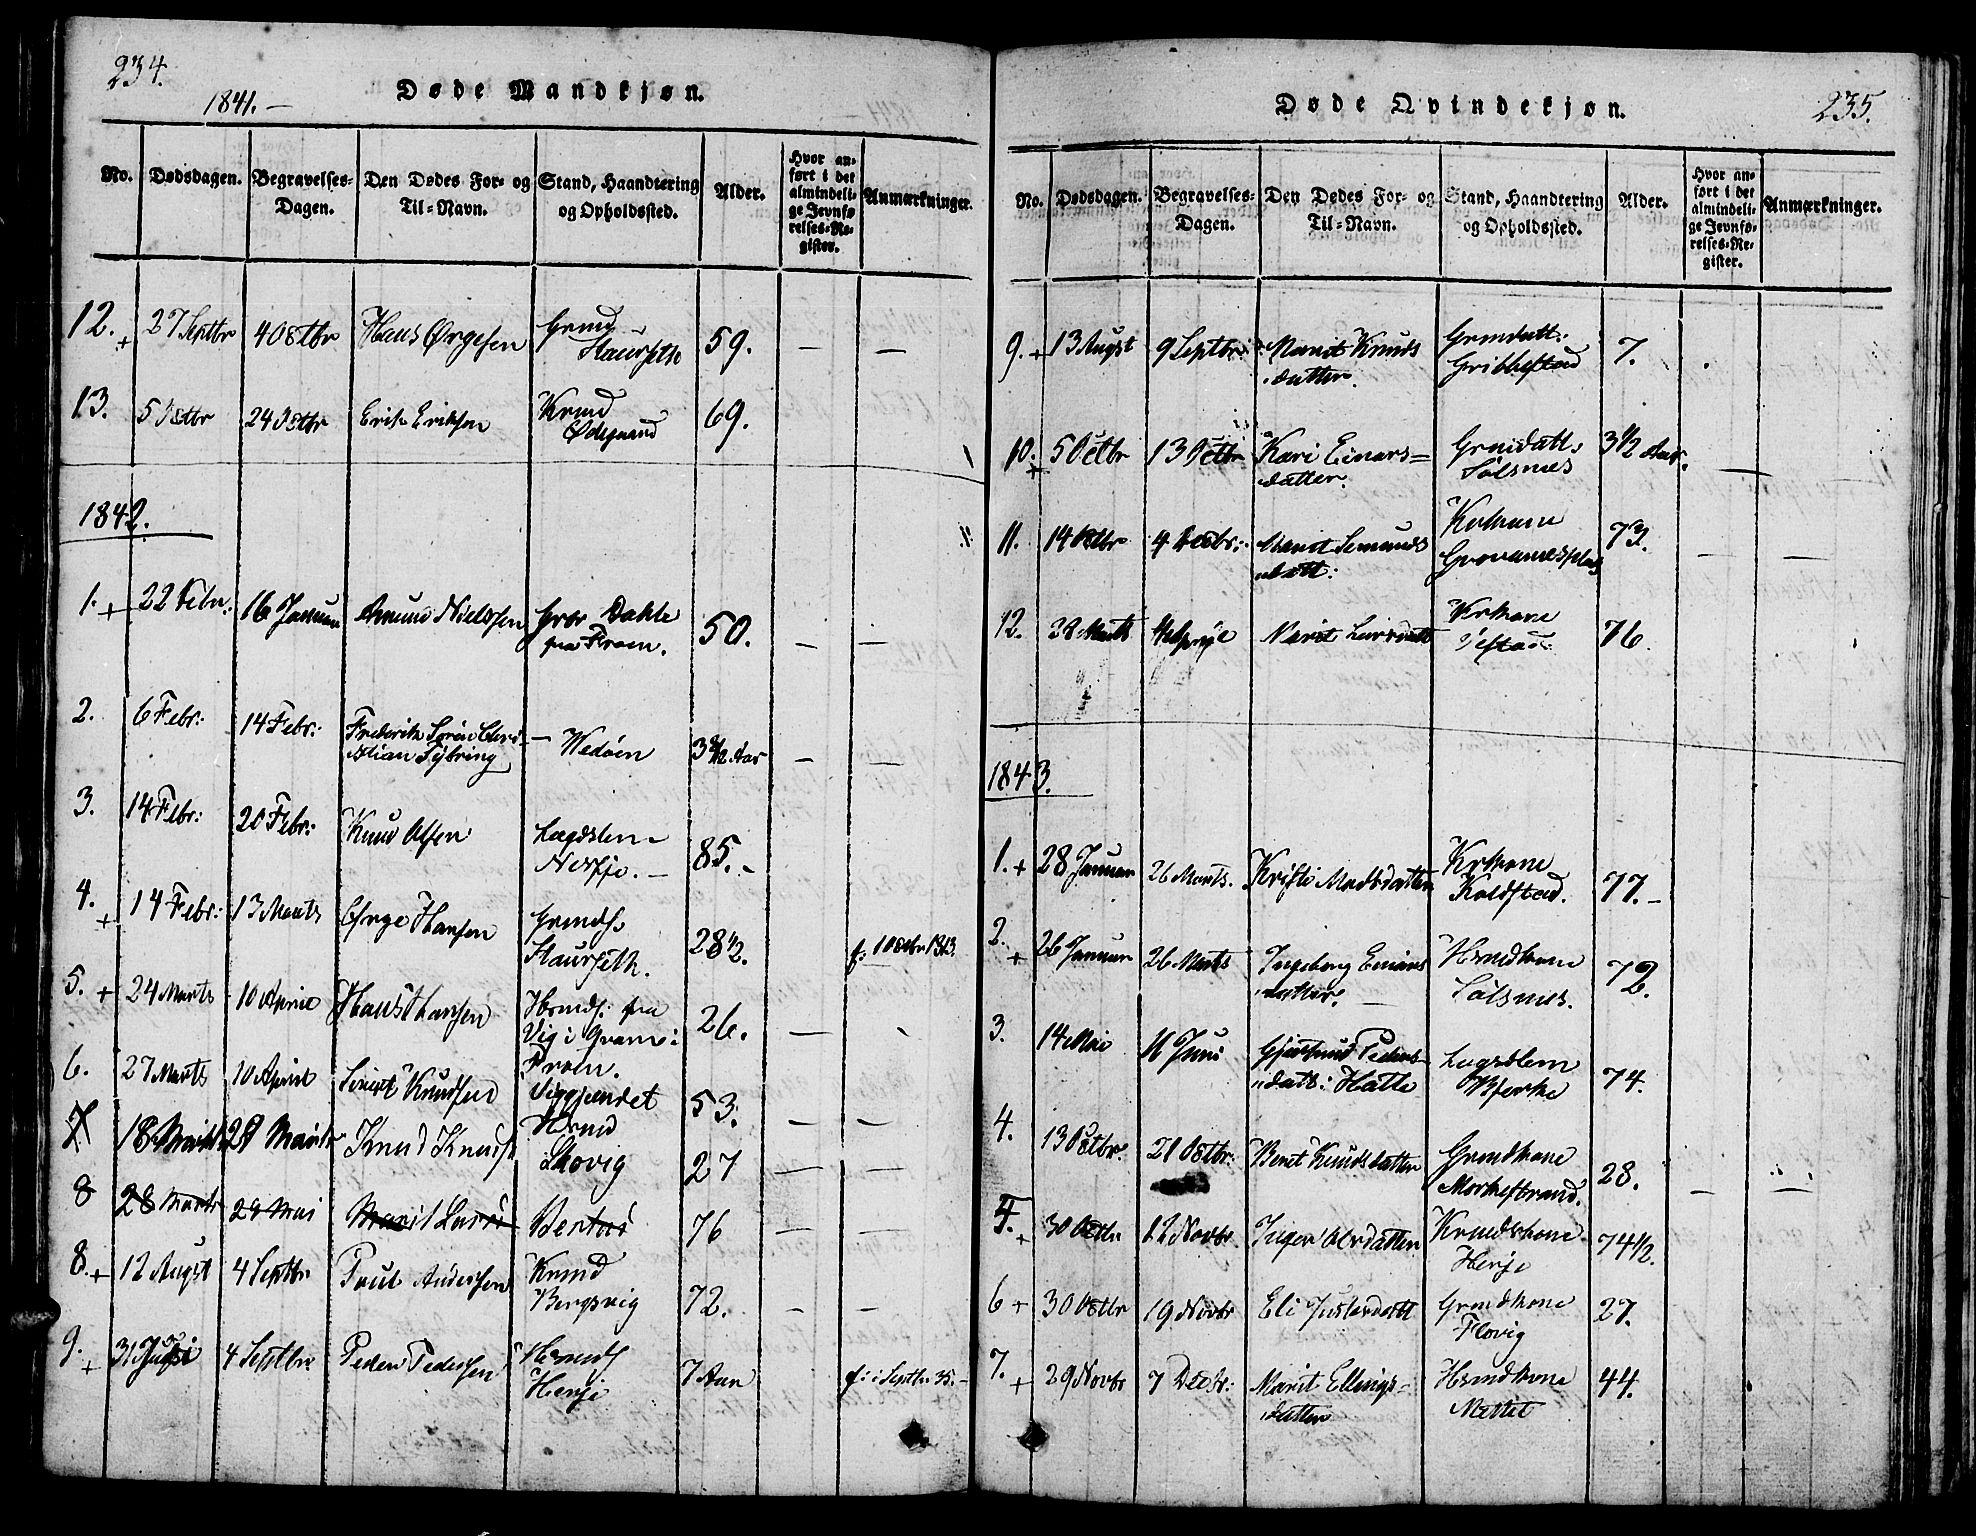 234.
1841.—
Døde Mandkjøn.
No.
Dødsdagen.
Begravelses-
Dagen.
Den Dødes For- og
Til-Navn.
Stand, Haandtering
og Opholdssted.
Alder.
Hvor an-
ført i det
almindeli-
ge Jevnfø-
relses-Re-
gister.
Anmærkninger.
12. + 27 Septbr 4 Octbr Hans Ørgesen Grmd
Haurseth 59. — —
13. 5 Octbr 24 Octbr Erik Eriksen Krmd
Ødegaard 69.
1842.
1. + 22 16 Januar Amund Nielssen Dahle
fra Froen. 50. — —
2. 6 Febr: 14 Febr: Frederik Sørin Chri-
stian Sybring — Wedøen 3 1/2 Aar — —
3. 14 Febr: 20 Febr: Knud Olsen Lægdslem
Nerhje. — 85. —
4. + 14 Febr: 13 Marts Ørge Hansen Grmds.
Haurseth. 28 1/2. f: 1 Octbr 1813.
5. + 24 Marts 10 April Hans Hansen Hsmds: fra
Vig i Grams: 26. —
6. 27 Marts 10 April Sivert Knudsen Præln.
Viggjendet 53. — —
7 18 Marts 28 Marts Knud Knuds Hsmd
Skovig 27 — —
8 28 Marts 29 Mai Marit Lars 76 — —
8. + 12 Augst 4 Septbr Poul Andersen Krmd
Bergsvig 72. — —
9. + 31 4 Septbr Peder Pedersen Hsmds
Herje 7 Aar f: i Septbr 35. —
Døde Qvindekjøn.
235.
No.
Dødsdagen.
Begravelses-
Dagen.
Den Dødes For- og
Til-Navn.
Stand, Haandtering
og Opholdssted.
Alder.
Hvor an-
ført i det
almindeli-
ge Jevnfø-
relses-Re-
gister.
Anmærkninger.
9. + 13 Augst 9 Septbr Marit Knuds
datter. Grmdatt:
Gribbestad 7.
10. + 5 Octbr 13 Octbr Kari Einars=
datter. Grmdatt:
Sølsnes 3 1/2 Aar. —
11. 14 Octbr 4 Decbr: Marit Semunds
datt: Krkone
Grovanesplads 73. — —
12. Marit Larsdatt Krkone
76.
1843.
1. + 28 Januar 26 Marts. Kristi Madsdatter Krkone
Koldstad. 77. —
2. + 26 Januar 26 Marts Ingeborg Einars
datter. — Hsmdkone
Sølsnes. 72.
3. 14 Mai 11 Juni Gjertrud Peders
datt: Hatle Lægdslem
Bjerke 74.
4. 13 Octbr. 21 Octbr: Beret Knudsdatter Grmdkone
Morkestrand. 28. — —
5. + 30 Octbr 12 Novbr Inger Olsdatter Krmdskone
Herje 74 1/2.
6 + 30 Octbr 19 Novbr Eli Justersdatt Grmdkone
Flovig 27.
7. + 29 Novbr 7 Decbr: Marit Ellings=
datter Hsmdkone
Mettet 44.